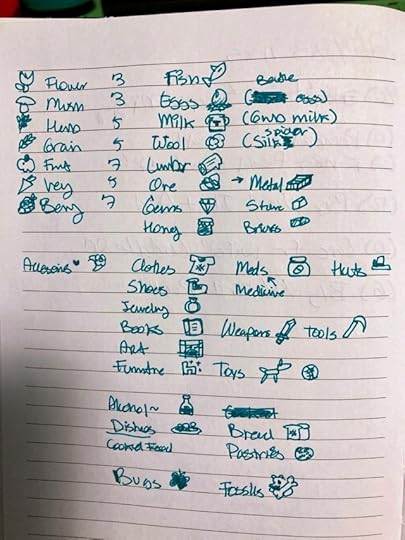 Flower 3 Fish Beetle
Mush 3 Eggs (eggs)
Herb 5 Milk (Goat milk)
Grain 5 Wool (Silk spider)
Fruit 7 Lumber
Veg 5 Ore → Metal
Berry 7 Gems Stone
Honey Bricks
Accesories Clothes Meds Hats
Shoes Medicine
Jewelry
Books Weapons Tools
Art
Furniture Toys
Alcohol~
Dishes Bread
Cooked Food Pastries
Bugs Fossils